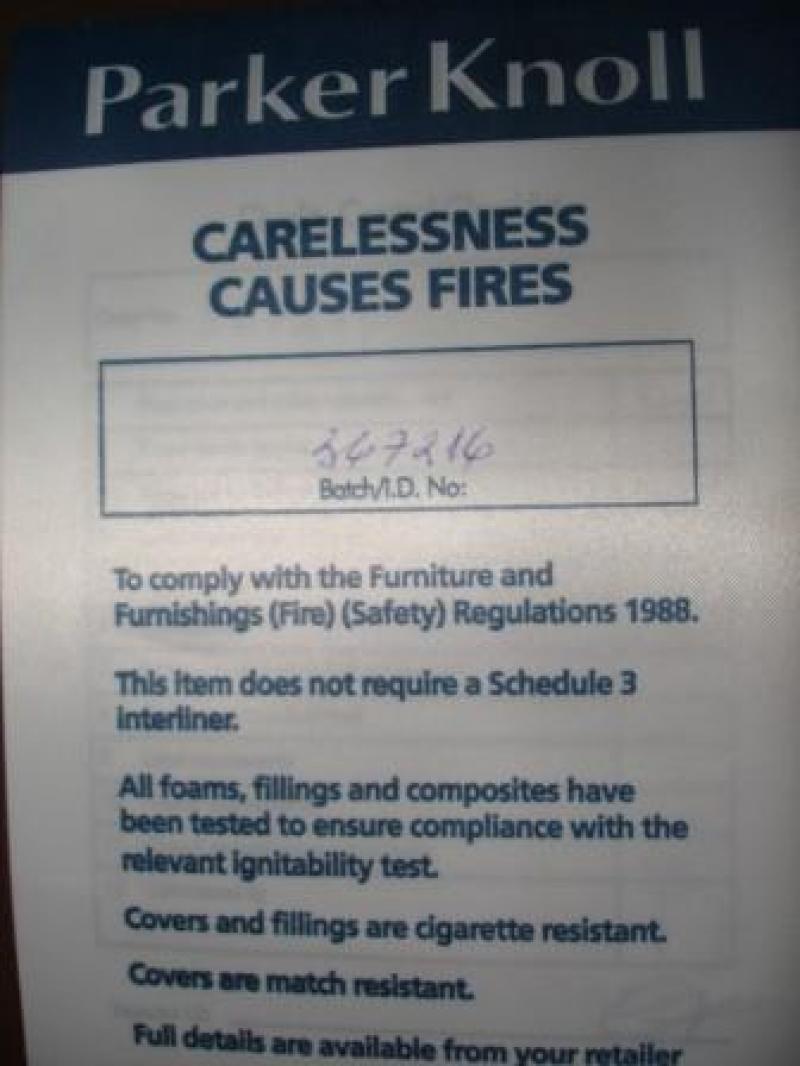 Parker Knoll
CARELESSNESS
CAUSES FIRES
367216
Batch/I.D. No:
To comply with the Furniture and
Furnishings (Fire) (Safety) Regulations 1988.
This item does not require a Schedule 3
interliner.
All foams, fillings and composites have
been tested to ensure compliance with the
relevant ignitability test.
Covers and fillings are cigarette resistant.
Covers are match resistant.
Full details are available from your retailer